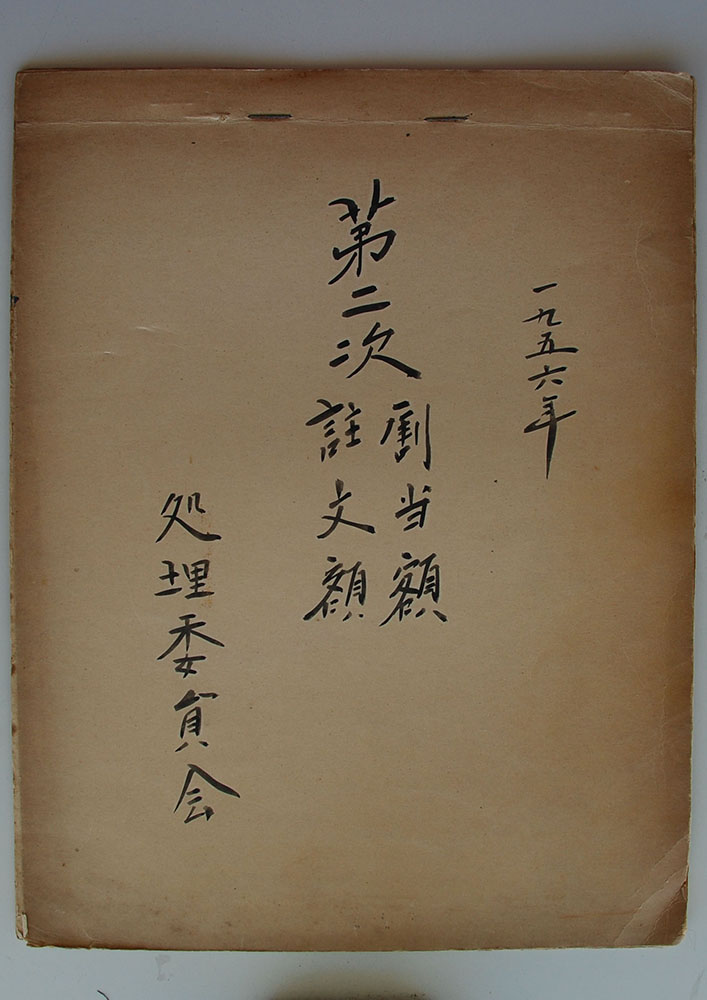 一九五六年
第二次
割当額
註文額
処理委員会